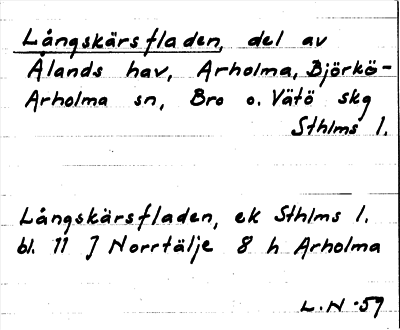 Långskärsfladen, del av
Ålands hav, Arholma, Björkö-
Arholma sn, Bro o. Vätö skg
Sthlms l.
Långskärsfladen, ek Sthlms l.
bl. 11 J Norrtälje 8 h Arholma
L.N -59